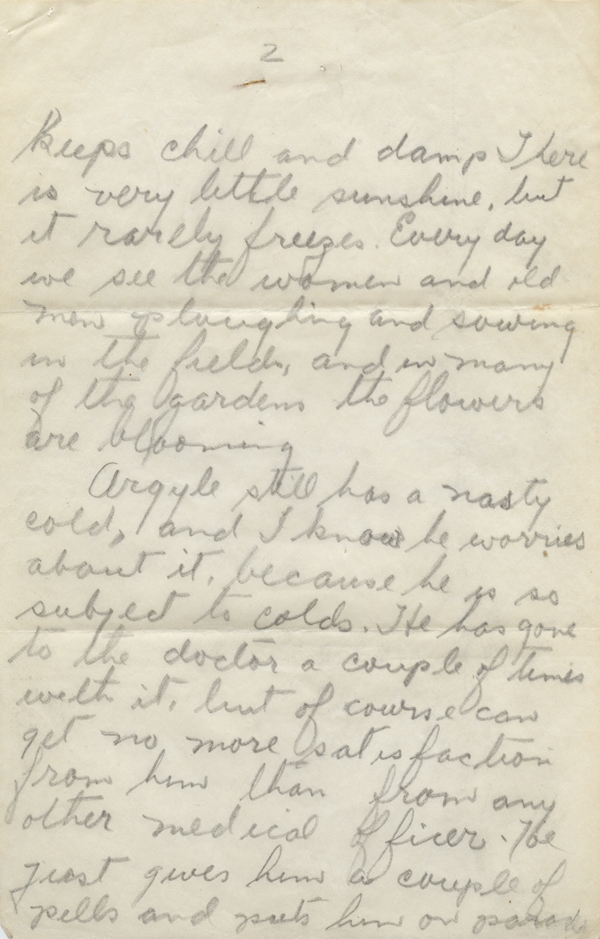 2
Keeps chill and damp There
is very little sunshine, but
it rarely freezes. Every day
we see the women and old
men ploughing and sowing
in the fields, and in many
of the gardens the flowers
are blooming
Argyle still has a nasty
cold, and I know he worries
about it, because he is so
subject to colds. He has gone
to the doctor a couple of times
with it, but of course can
get no more satisfaction
from him than from any
other medical officer. He
just gives him a couple of
pills and puts him on parade